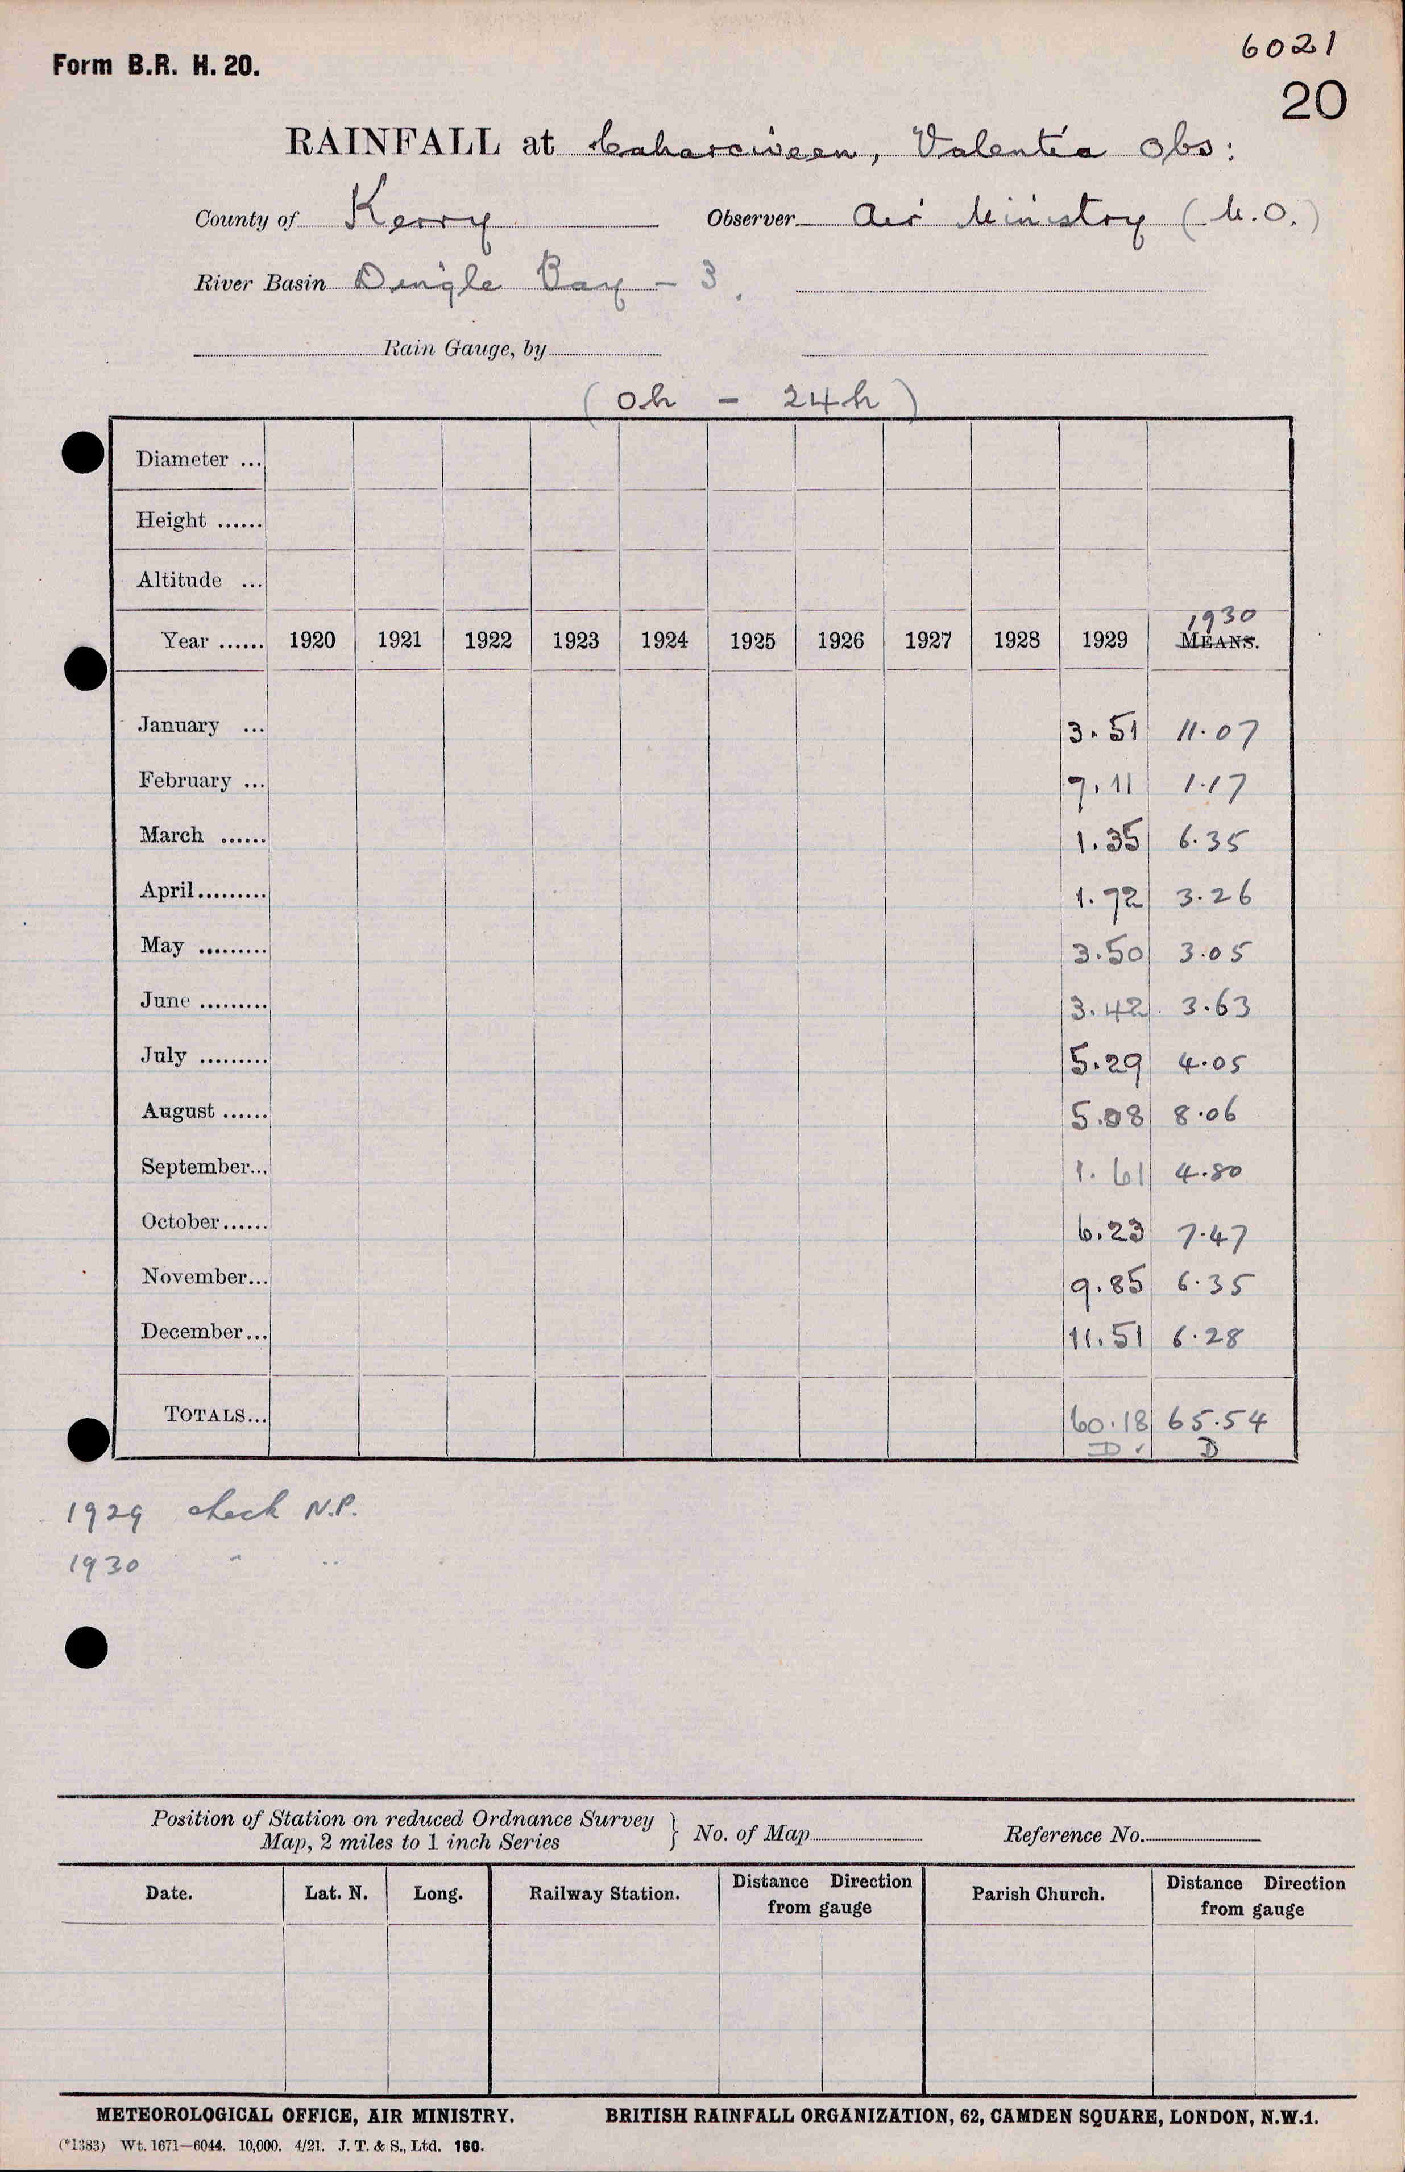 6021
Form B.R. H. 20.
20
RAINFALL at Caherciveen, Valentia Obs:
County of Kerry Observer Air Ministry (M.O.)
River Basin Dingle Bay - 3.
Rain Gauge, by
(0h - 24h)
Diameter ...
Height ......
Altitude ...
1930
Year ...... 1920 1921 1922 1923 1924 1925 1926 1927 1928 1929 MEANS.
January ... 3.51 11.07
February ... 7.11 1.17
March ...... 1.35 6.35
April ......... 1.72 3.26
May ......... 3.50 3.05
June ......... 3.42 3.63
July ......... 5.29 4.05
August ...... 5.08 8.06
September... 1.61 4.80
October ...... 6.23 7.47
November... 9.85 6.35
December... 11.51 6.28
TOTALS... 60.18 65.54
D ✓ D
1929 check N.P.
1930 " "
Position of Station on reduced Ordnance Survey Map, 2 miles to 1 inch Series } No. of Map Reference No.
Date. Lat. N. Long. Railway Station. Distance Direction from gauge Parish Church. Distance Direction from gauge
METEOROLOGICAL OFFICE, AIR MINISTRY. BRITISH RAINFALL ORGANIZATION, 62, CAMDEN SQUARE, LONDON, N.W.1.
(*1383) Wt. 1671—6044. 10,000. 4/21. J. T. & S., Ltd. 160.